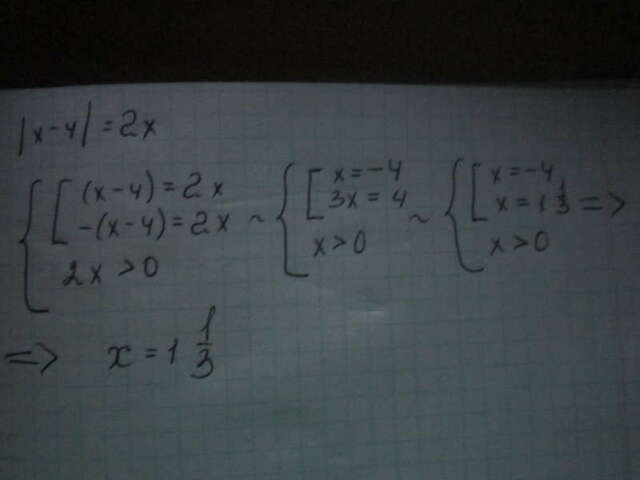 |x-4| = 2x
{ [ (x-4) = 2x
-(x-4) = 2x
2x > 0
~ { [ x = -4
3x = 4
x > 0
~ { [ x = -4
x = 1 1/3
x > 0
=>
=> x = 1 1/3